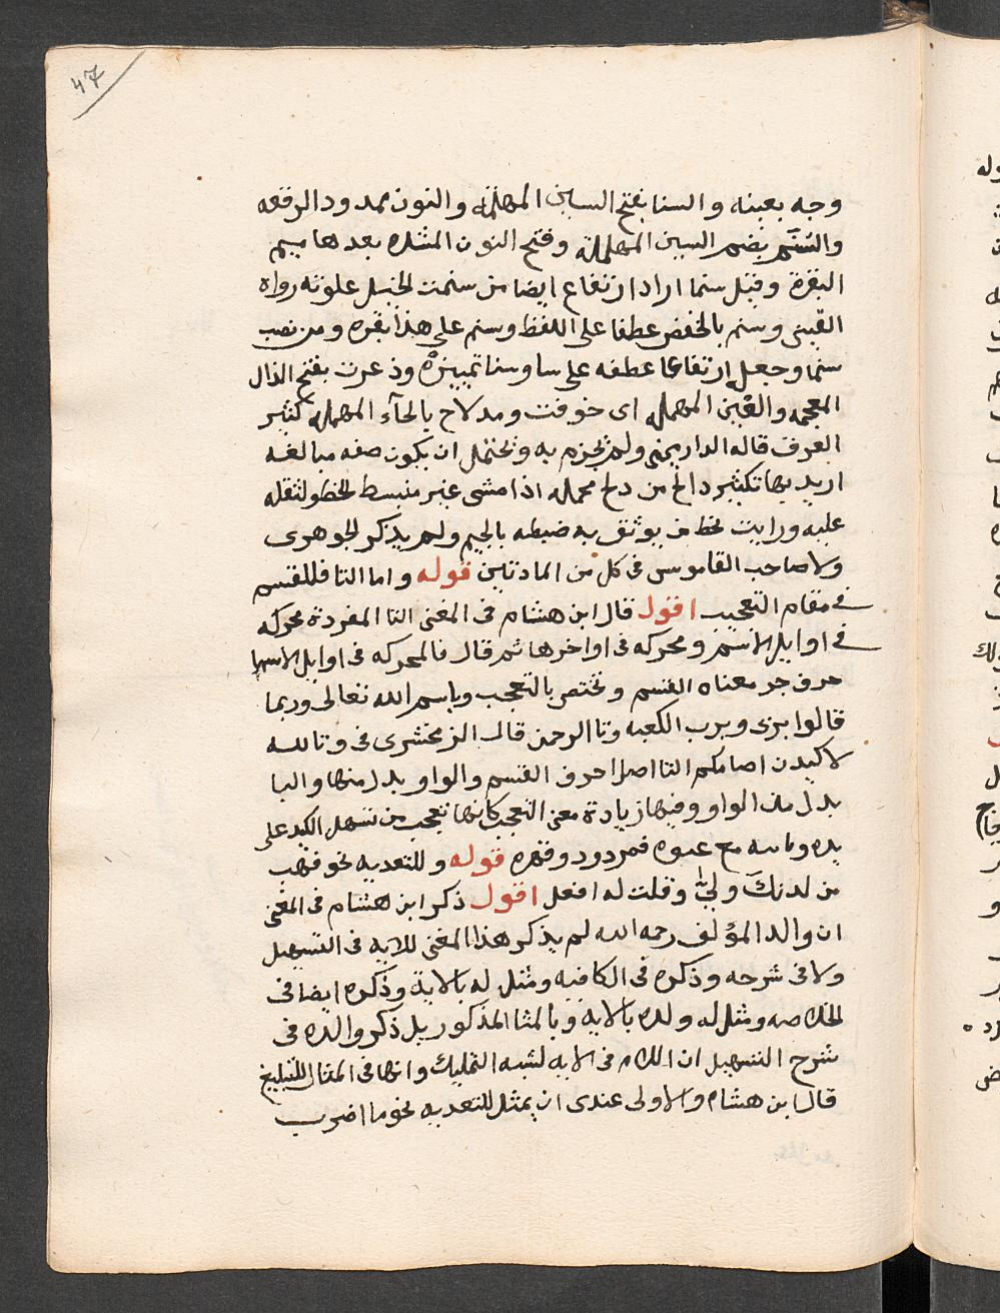 47
وجه بعينه والسنا بفتح السين المهملة والنون ممدود الرفعه
والسُنَّم بضم السين المهملة وفتح النون المشدده بعدها ميم
البقرة وقيل سنما اراد ارتفاع ايضا من سنمت الجبل علوته رواه
القيني وسنم بالخفض عطفا على اللفظ وسنم على هذا بقره ومن نصب
سنما وجعل ارتفاعا عطفه على سا وسنا تمييزه وذعرت بفتح الذال
المعجمه والعين المهمله اى خوفت ومدلاح بالحآء المهمله كثير
العرف قاله الداريمنى ولم يجزم به ويحتمل ان يكون صفه مبالغه
اريد بها تكثير دالح من دلح بحمله اذا مشى غير منبسط الخطو لثقله
عليه ورايت بخط من يوثق به ضبطه بالجيم ولم يذكر الجوهرى
ولا صاحب القاموس فى كل من المادتين قوله واما التا فللقسم
فى مقام التعجب اقول قال ابن هشام فى المغنى التا المفردة محركه
فى اوايل الاسم ومحركه فى اواخرها ثم قال فالمحركه فى اوايل الاسما
حرف جر معناه القسم وتختص بالتعجب وباسم الله تعالى وربما
قالوا بربى وبرب الكعبه وتا الرحمن قال الزمخشرى فى وتالله
لاكيدن اصنامكم التا اصل احرف القسم والواو بدل منها والبا
بدل من الواو وفيها زيادة معنى التعجب كانها تعجب من تسهل الكيد على
يده وتاتيه مع عتوه نمرود وقهره قوله وللتعديه نحو فهب
من لدنك وليّا وقلت له افعل اقول ذكر ابن هشام فى المغنى
ان والد المؤلف رحمه الله لم يذكر هذا المعنى للايه فى التسهيل
ولا فى شرحه وذكره فى الكافيه ومثل له بالاية وذكره ايضا فى
الخلاصه ومثل له ولده بالايه وبالمثا المذكور بل ذكر والده فى
شرح التسهيل ان اللام فى الايه لشبه التمليك وانها فى المثال للتبليغ
قال ابن هشام والاولى عندى ان يمثل للتعديه نحو ما اضرب